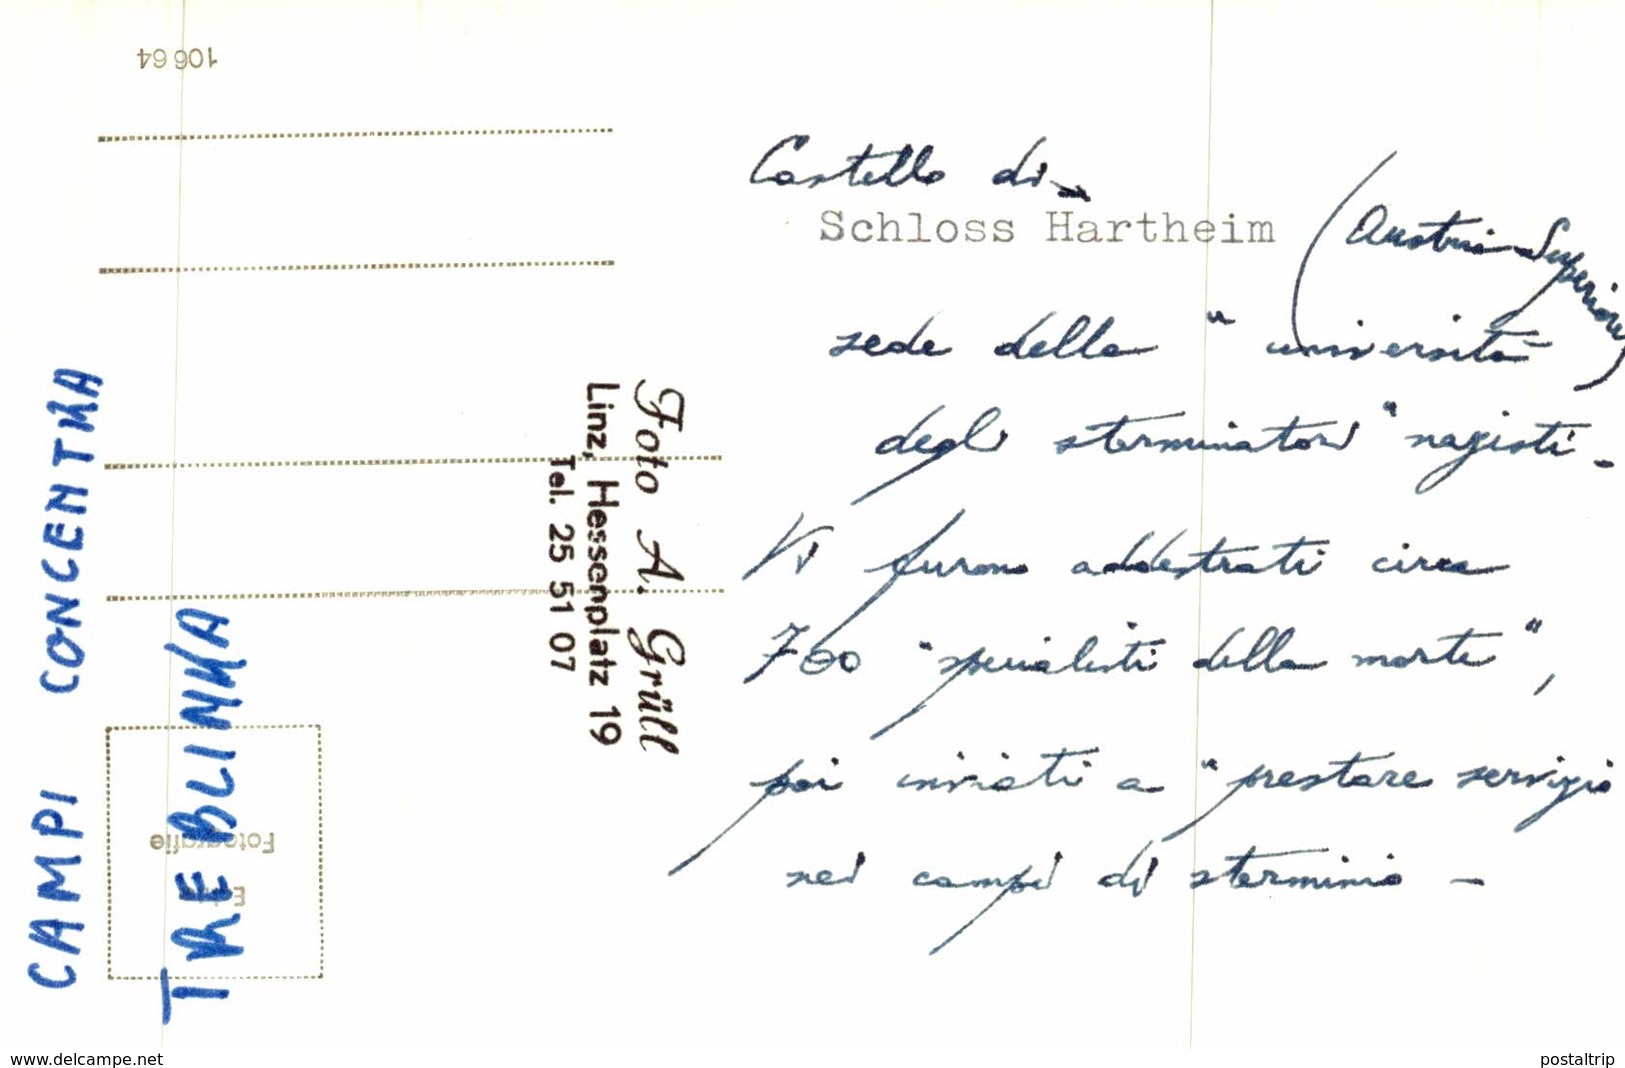 10664
Castello di
Schloss Hartheim (Austria Superiore)
sede della "università
degli sterminatori" nazisti -
Vi furono addestrati circa
700 "specialisti della morte",
poi inviati a "prestare servizio
nei campi di sterminio -
Foto A. Grüll
Linz, Hessenplatz 19
Tel. 25 51 07
CAMPI CONCENTRA
TREBLINKA
Fotografie
www.delcampe.net
postaltrip